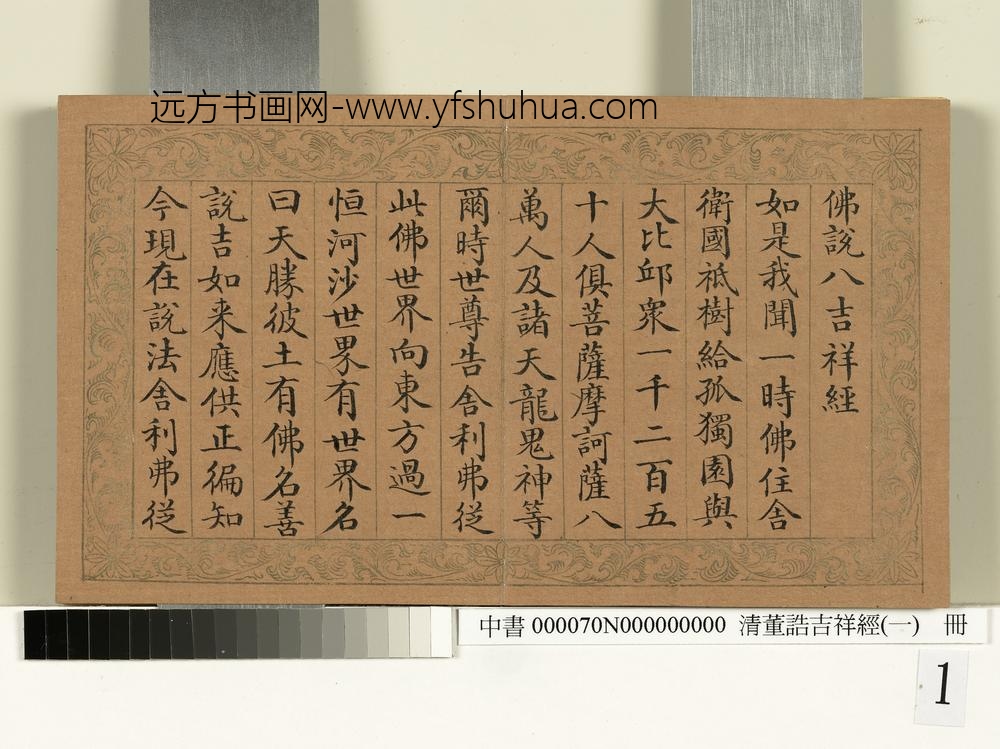 远方书画网-www.yfshuhua.com
佛說八吉祥經
如是我聞一時佛住舍
衛國祇樹給孤獨園與
大比邱衆一千二百五
十人俱菩薩摩訶薩八
萬人及諸天龍鬼神等
爾時世尊告舍利弗從
此佛世界向東方過一
恒河沙世界有世界名
曰天勝彼土有佛名善
說吉如来應供正徧知
今現在說法舍利弗從
中書 000070N000000000 清董誥吉祥經(一) 冊
1